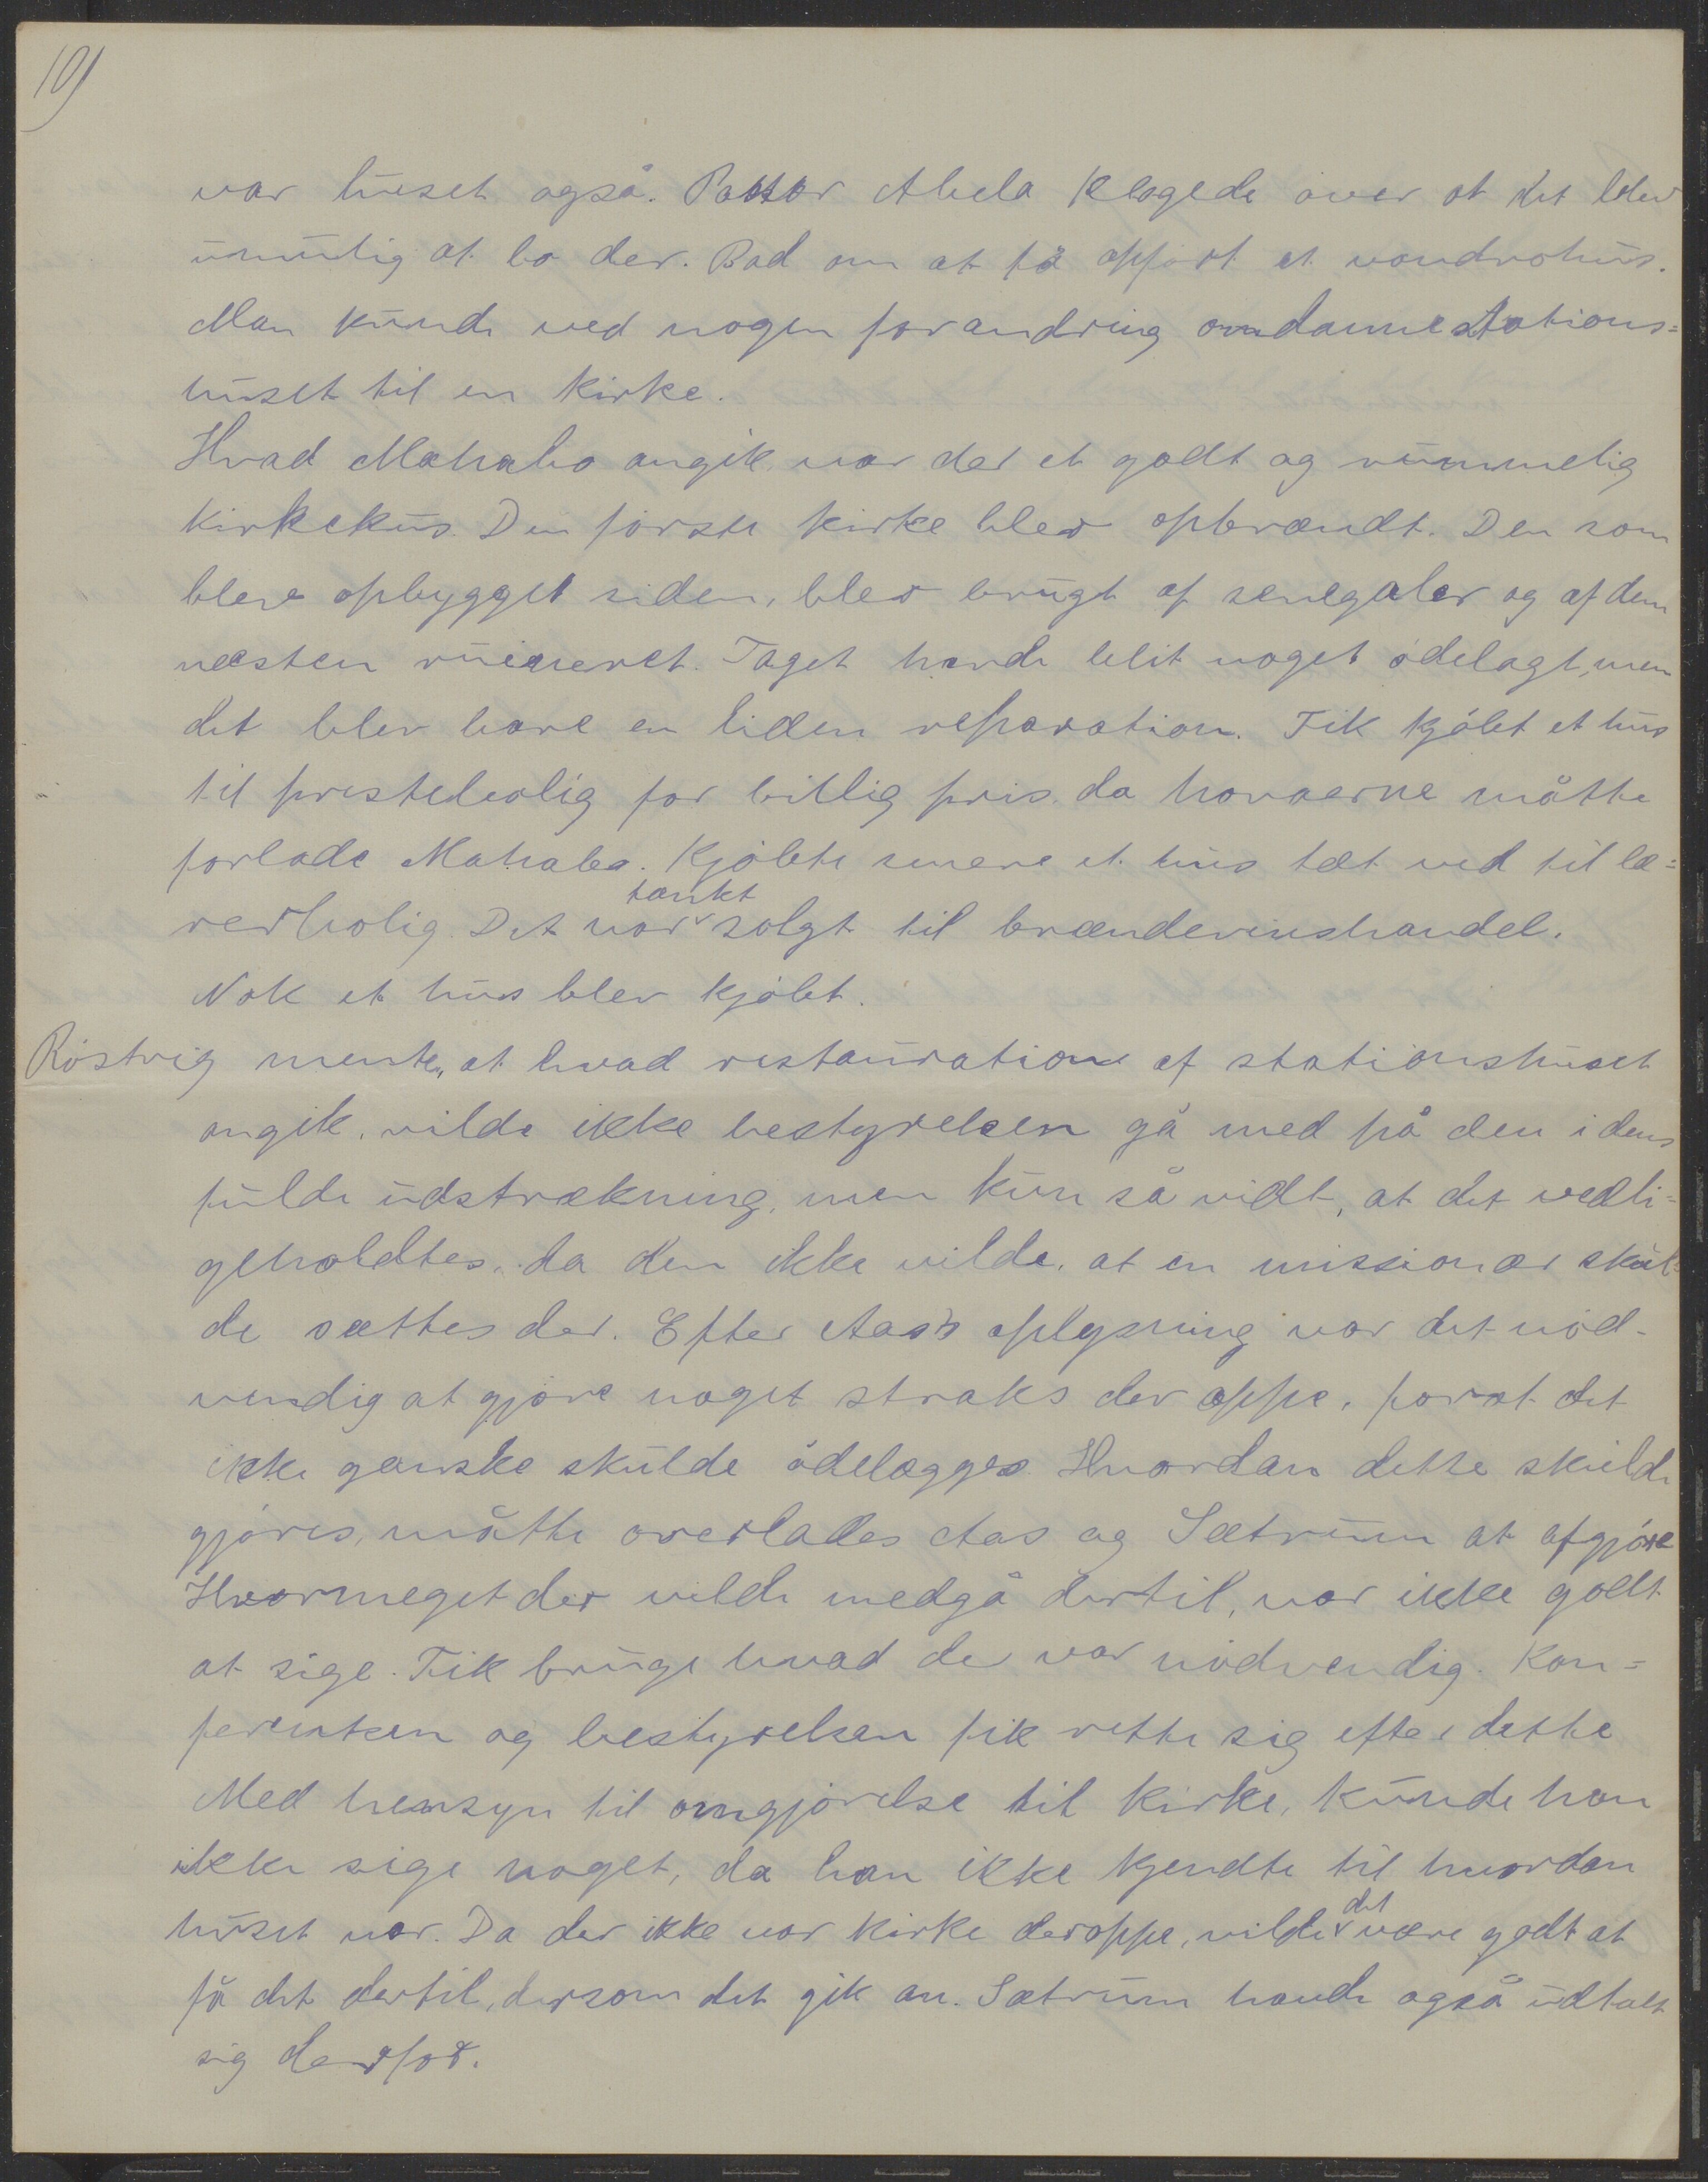 10)
var huset også. Pastor Abela klagede over at det blev
umulig at bo der. Bad om at få opført et vondrohus.
Man kunde ved nogen forandring omdanne stations=
huset til en kirke.
Hvad Mahabo angik var der et godt og rummelig
kirkehus. Den første kirke blev opbrændt. Den som
blev opbygget siden, blev brugt af senegaler og af dem
næsten ruineret. Taget havde blit noget ødelagt, men
det blev bare en liden reparation. Fik kjøbt et hus
til prestebolig for billig pris, da hovaerne måtte
forlade Mahabo. Kjøbte senere et hus tæt ved til læ=
rerbolig. Det var tænkt solgt til brændevinshandel.
Nok et hus blev kjøbt.
Röstvig mente, at hvad restauration af stationshuset
angik, vilde ikke bestyrelsen gå med på den i dens
fulde udstrækning, men kun så vidt, at det vedli=
geholdtes, da den ikke vilde, at en missionær skul=
de sættes der. Efter Aas's oplysning var det nød-
vendig at gjøre noget straks der oppe, forat det
ikke ganske skulde ødelægges. Hvordan dette skulde
gjøres, måtte overlades Aas og Sætrum at afgjøre
Hvormeget der vilde medgå dertil, var ikke godt
at sige. Fik bruge hvad der var nødvendig. Kon=
ferentsen og bestyrelsen fik rette sig efter dette
Med hensyn til omgjørelse til kirke, kunde han
ikke sige noget, da han ikke kjendte til hvordan
huset var. Da der ikke var kirke deroppe, vilde det være godt at
få det dertil, dersom det gik an. Sætrum havde også udtalt
sig derfor.